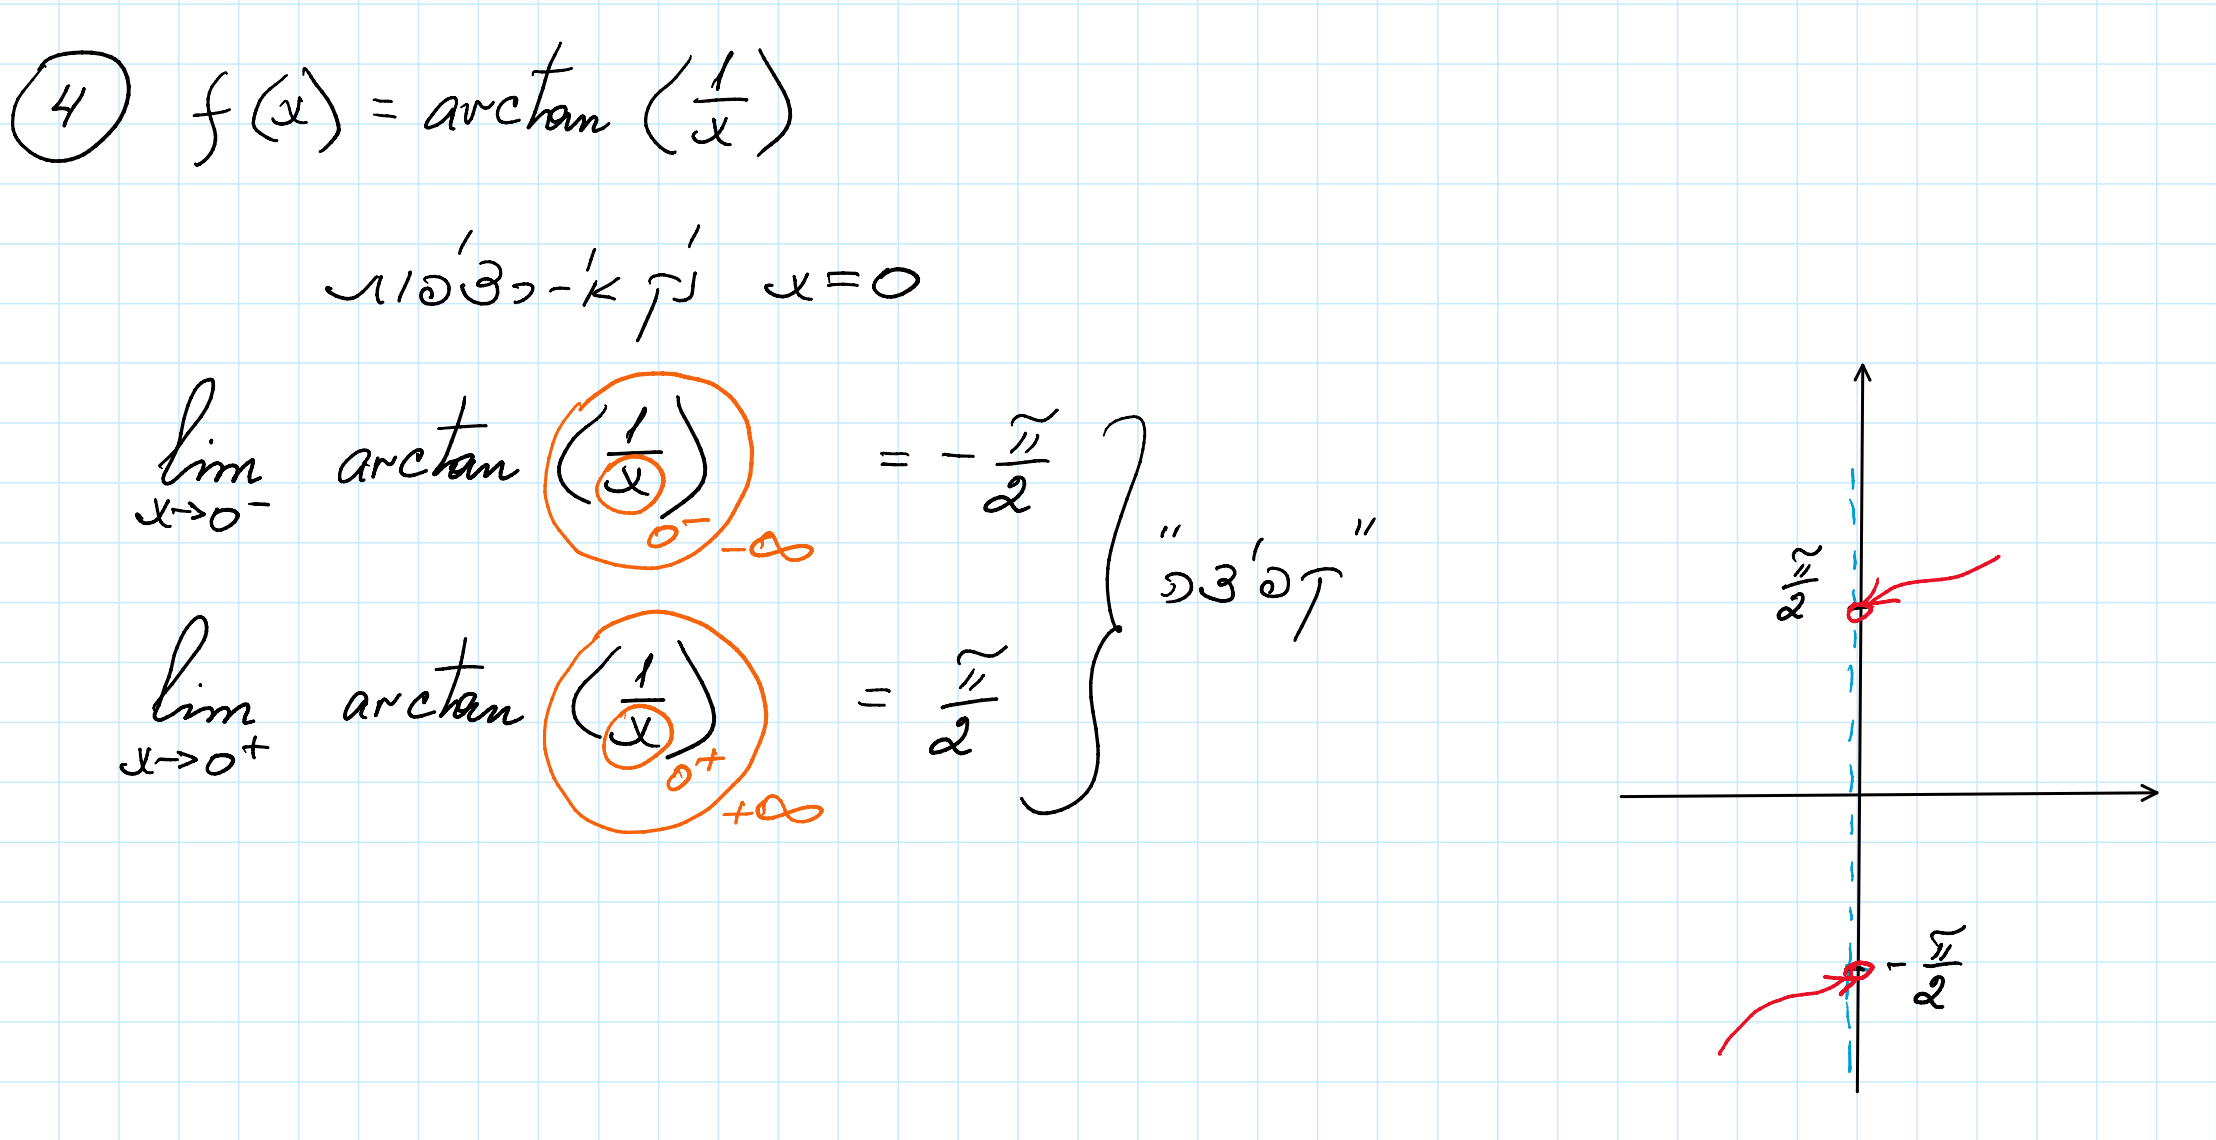 ④ f(x) = arctan (1/x)
x=0 נק' אי-רציפות
lim x→0⁻ arctan (1/x) = -π/2
0⁻
-∞
"קפיצה"
lim x→0⁺ arctan (1/x) = π/2
0⁺
+∞
π/2
-π/2